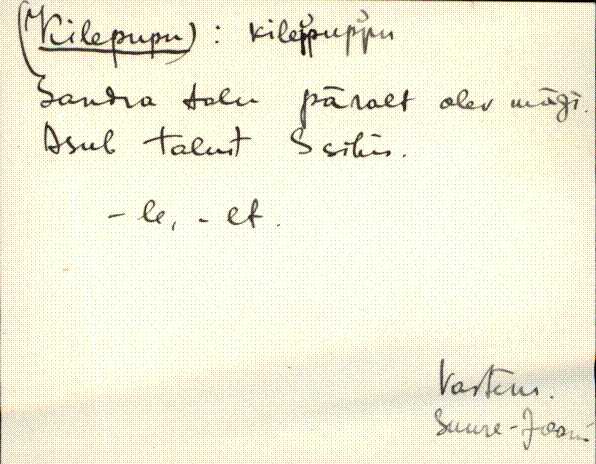 (Kilepupu) : kileppuppu
Sandra talu päralt olev mägi.
Asub talust S sihis.
- le, - lt.
Vastem.
Suure-Jaani